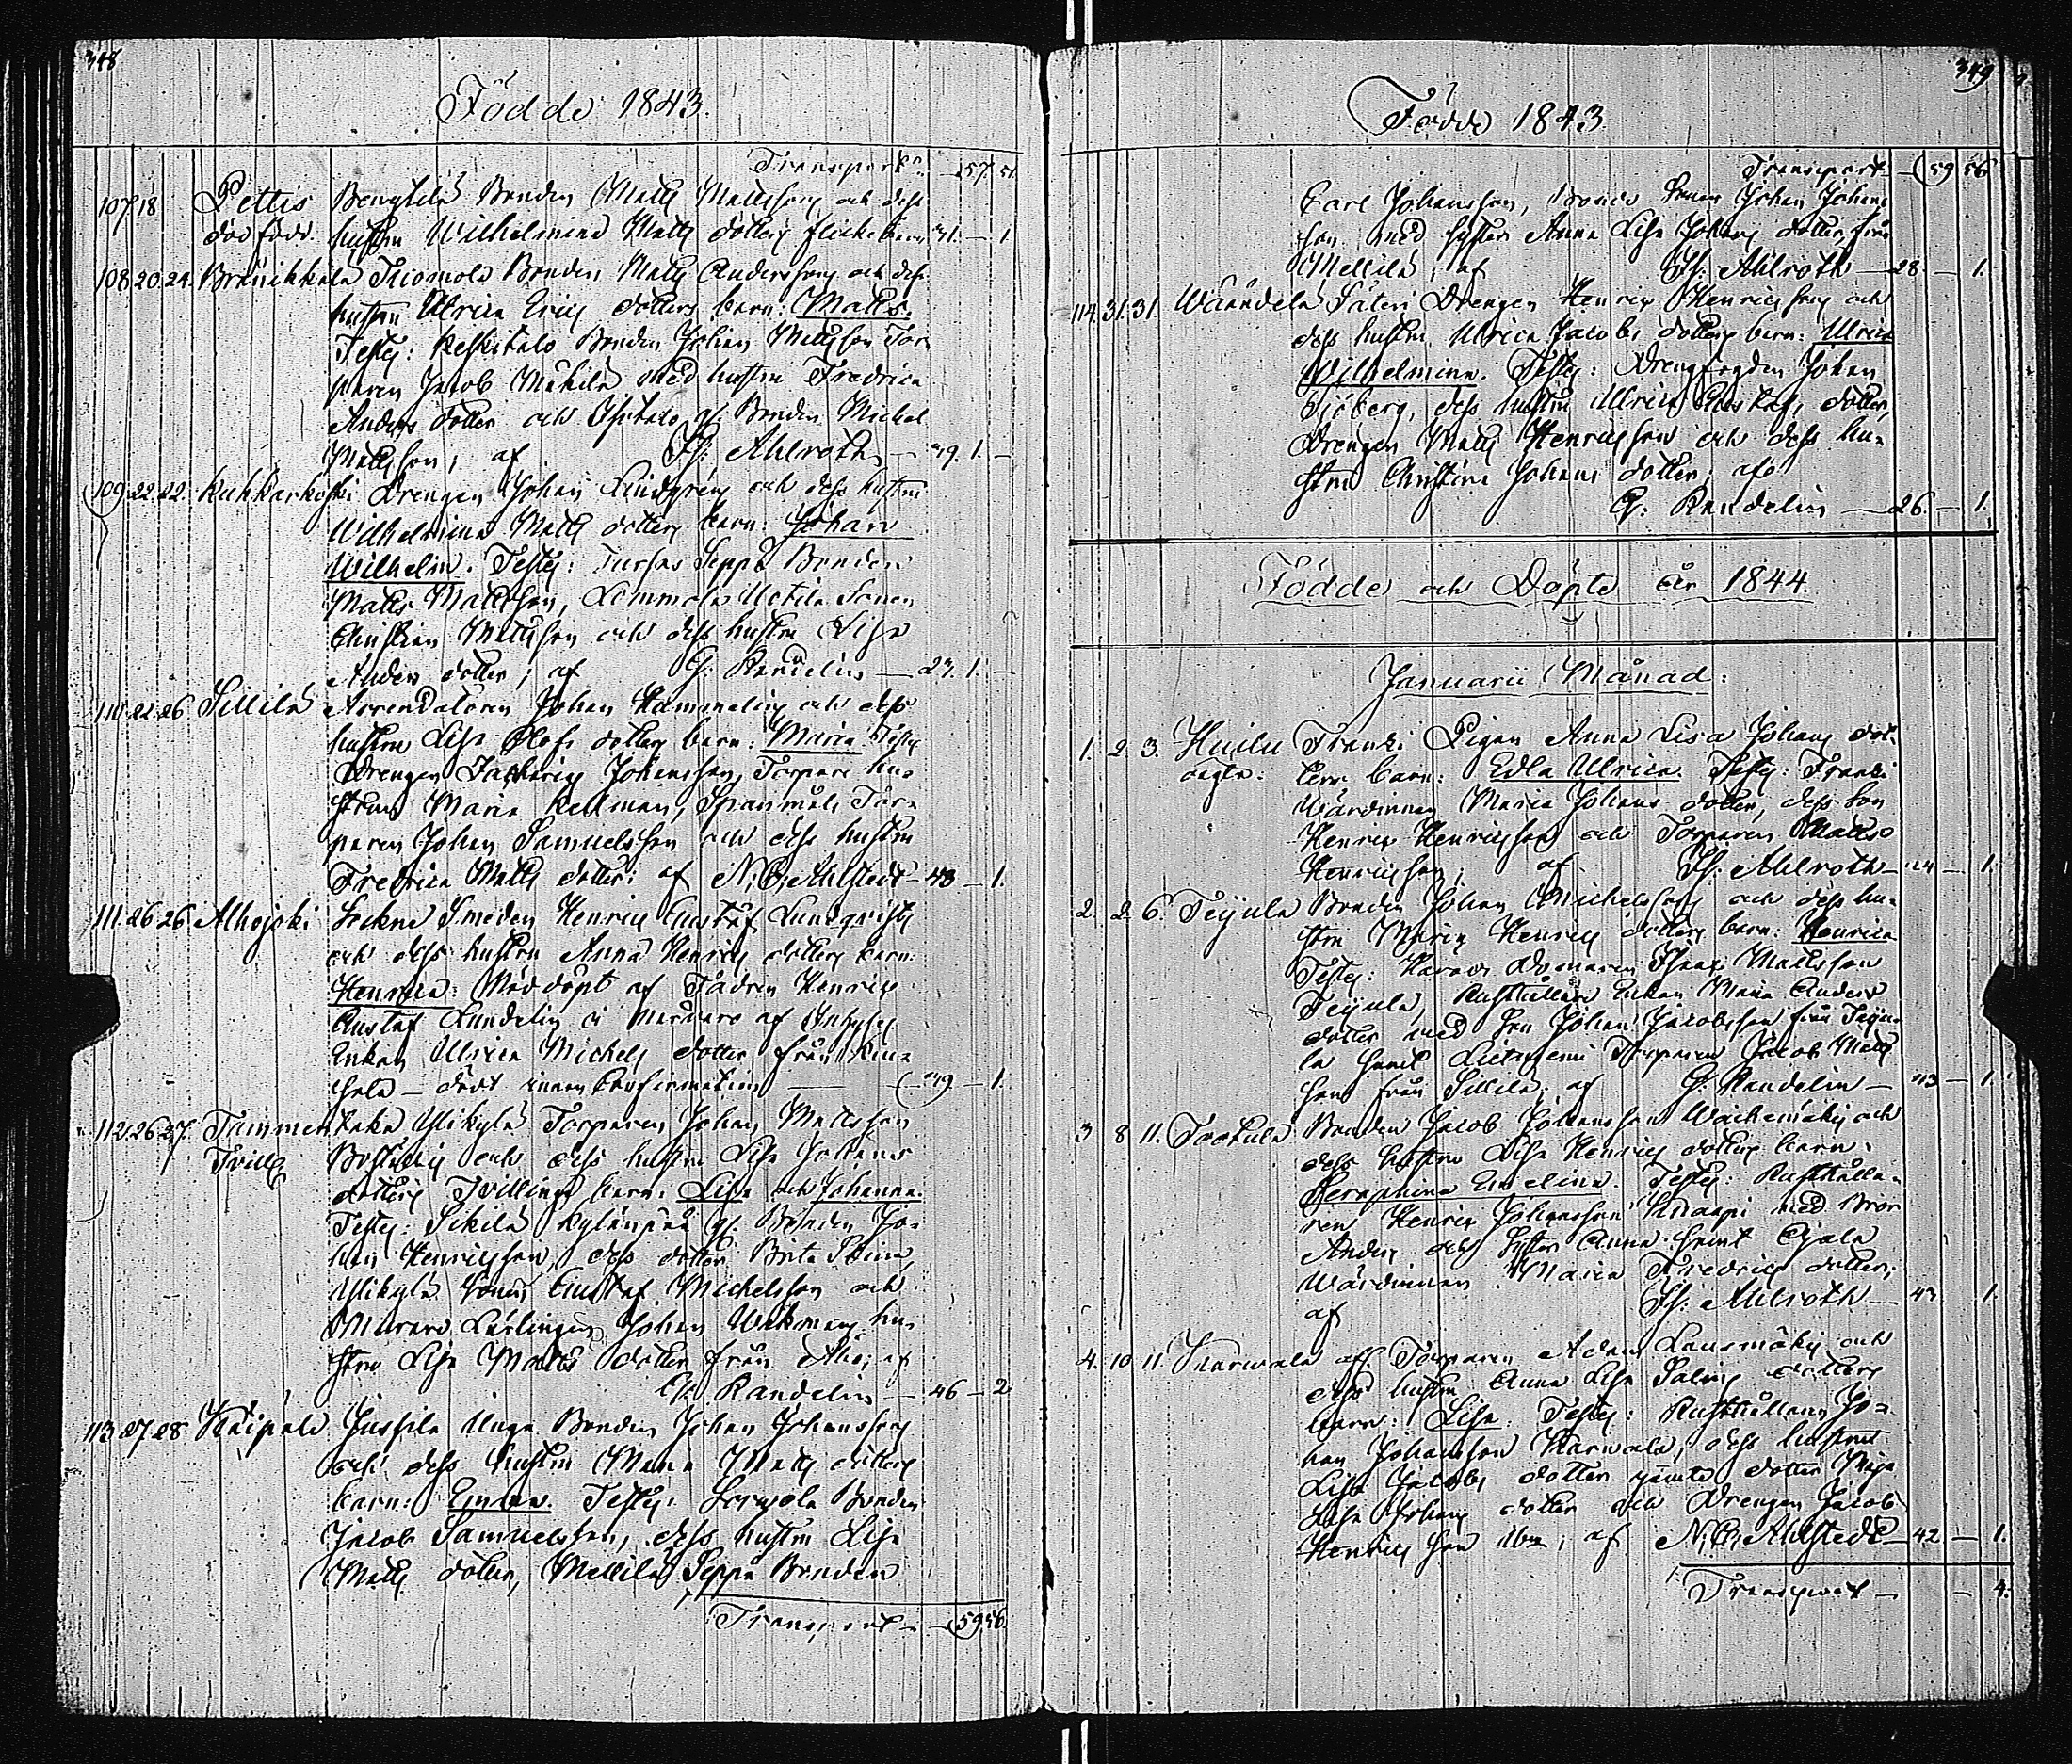 348
Födde 1843.
Transport 57. 51.
107 18 Pettis Bengtilä Bonden Matts Mattsson och dess
död född. hustru Wilhelmina Matts dotters flickebarn 31. — 1
108. 20. 24. Bränikkala Tuomola Bonden Matts Andersson och dess
hustru Ulrica Erics dotters barn: Matts.
Testes: Keskitalo Bonden Johan Mattsson Tor-
paren Jacob Mäkilä med hustru Fredrica
Anders dotter och Isotalo Bonden Michel
Mattsson; af Is: Ahlroth — 29. 1. —
109. 22. 22. Kuhkarkoski Drengen Johan Lindgren och dess hustru
Wilhelmina Matts dotters barn: Johan
Wilhelm. Testes: Seppä Bonden
Matts Mattsson, Lemmola Sonen
Christian Mattsson och dess hustru Lisa
Anders dotter; af G: Randelin — 27. 1. —
110. 22. 26 Sillilä Arrendatoren Johan Hammelin och dess
hustru Lisa Olofs dotters barn: Maria Testes
Drengen Zacharias Johansson, Torpare hu-
strun Maria Kellman, Spanmåls Tor-
paren Johan Samuelsson och dess hustru
Fredrica Matts dotter; af N: C: Ahlstedt — 43 — 1.
111. 26 26 Alhojoki Sockne Smeden Henric Gustaf Lundqvists
och dess hustru Anna Henrics dotters barn:
Henrica: Nöddöpt af Fadren Henric
Gustaf Lundelin i närvaro af Inhyses
Enkan Ulrica Michels dotter från
— dödt innan Confirmation — 29 — 1.
112. 26 27 Tammentaka Ylikylä Torparen Johan Mattsson
Tvill och dess hustru Lisa Johans
dotters Tvillinge barn: Lisa och Johanna.
Testes: Sikilä Kylänpää Bonden Jo-
han Henricsson, dess dotter Brita Stina,
Ylikylä Sonen Gustaf Michelsson och
Murare Lärlingen Johan Wekman, hu-
stru Lisa Matts dotter från Åbo; af
G: Randelin — 46 — 2
113. 27 28 Kaipala Jussila Unga Bonden Johan Johansson
och dess hustru Maria Matts dotters
barn: Emma. Testes: Bonden
Jacob Samuelsson, dess hustru Lisa
Matts dotter, Mellilä Seppä Bonden
Transport — 59. 56.
349
Födde 1843.
Transport — 59 56
Carl Johansson, Bonde Sonen Johan Johans
son med syster Anna Lisa Johans dotter, från
Mellilä; af Is: Ahlroth — 28. — 1.
114. 31. 31. Wäändelä Säteri Drengen Henric Henricsson och
dess hustru Ulrica Jacobs dotters barn: Ulrica
Wilhelmina. Testes: Drengfogden Johan
Sjöberg, dess hustru Ulrica Gustafs dotter,
Drengen Matts Henricsson och dess hu-
stru Christina Johans dotter; af
G: Randelin — 26. — 1.
Födde och Döpte år 1844.
Januarii Månad:
1. 2. 3. Huilu Franki Pigan Anna Lisa Johans dot-
oägta: ters barn: Edla Ulrica. Testes: Franki
Wärdinnan Maria Johans dotter, dess son
Henric Henricsson och Torparen Matts
Henricsson; af Is: Ahlroth — 24 — 1.
2. 2. 6. Teijula Bonden Johan Michelsson och dess hu-
stru Maria Henrics dotters barn: Henrica
Testes: Isaac Mattsson
Teijula, Rusthållare Enkan Maria Anders
dotter med Son Johan Jacobsson från Teiju-
la samt Torparen Jacob Matts
son från Sillilä; af G: Randelin — 43 — 1.
3 8 11. Tootula Bonden Jacob Johansson och
dess hustru Lisa Henrics dotters barn:
Seraphina Evelina. Testes: Rusthålla-
ren Henric Johansson Knaapi med Bror
Anders och Syster Anna samt Ojala
Wärdinnan Maria Fredrics dotter;
af Is: Ahlroth — 43 1.
4. 10 11. Karwala Torparen Adam Lausmäki och
dess hustru Anna Lisa Salins dotters
barn: Lisa. Testes: Rusthållaren Jo-
han Johansson Karwala, dess hustru
Lisa Jacobs dotter jämte dotter Maja
Lisa Johans dotter och Drengen Jacob
Henricsson ibm; af N: C: Ahlstedt — 42 — 1.
Transport — — 4.